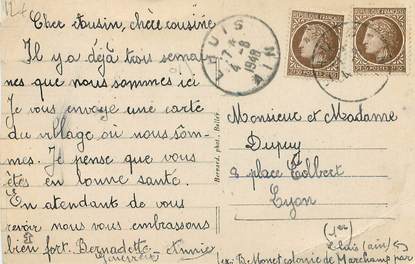 Cher Cousin, chère cousine
Il y a déjà trois semai
nes que nous sommes ici
Je vous envoye une carte
du village où nous som-
mes. Je pense que vous
êtes en bonne santé.
En attendant de vous
revoir nous vous embrassons
bien fort. Bernadette Annie
Monsieur et Madame
Dupuy
2 place Tolbert
Lyon
(ain)
colonie de Marchamp par
17 *
4 -8
1948
AIN
Bernard, phot., Belley